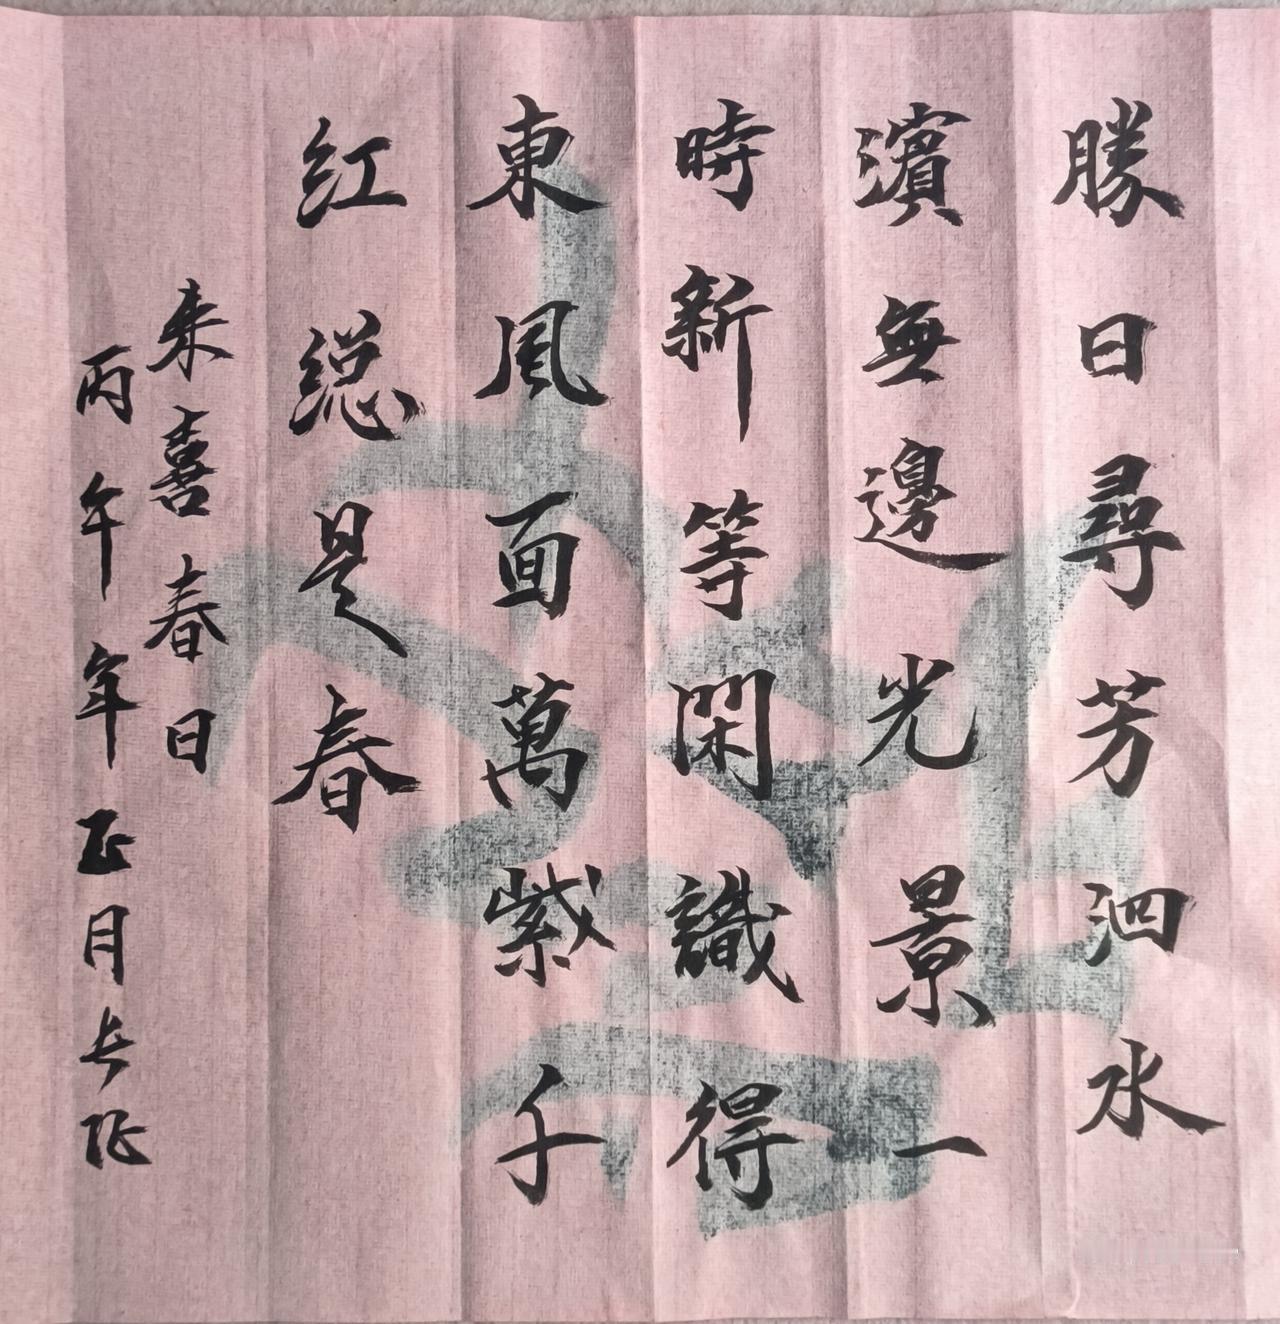 勝日尋芳泗水
濱無邊光景一
時新等閑識得
東風面萬紫千
红総是春
朱喜春日
丙午年正月长征